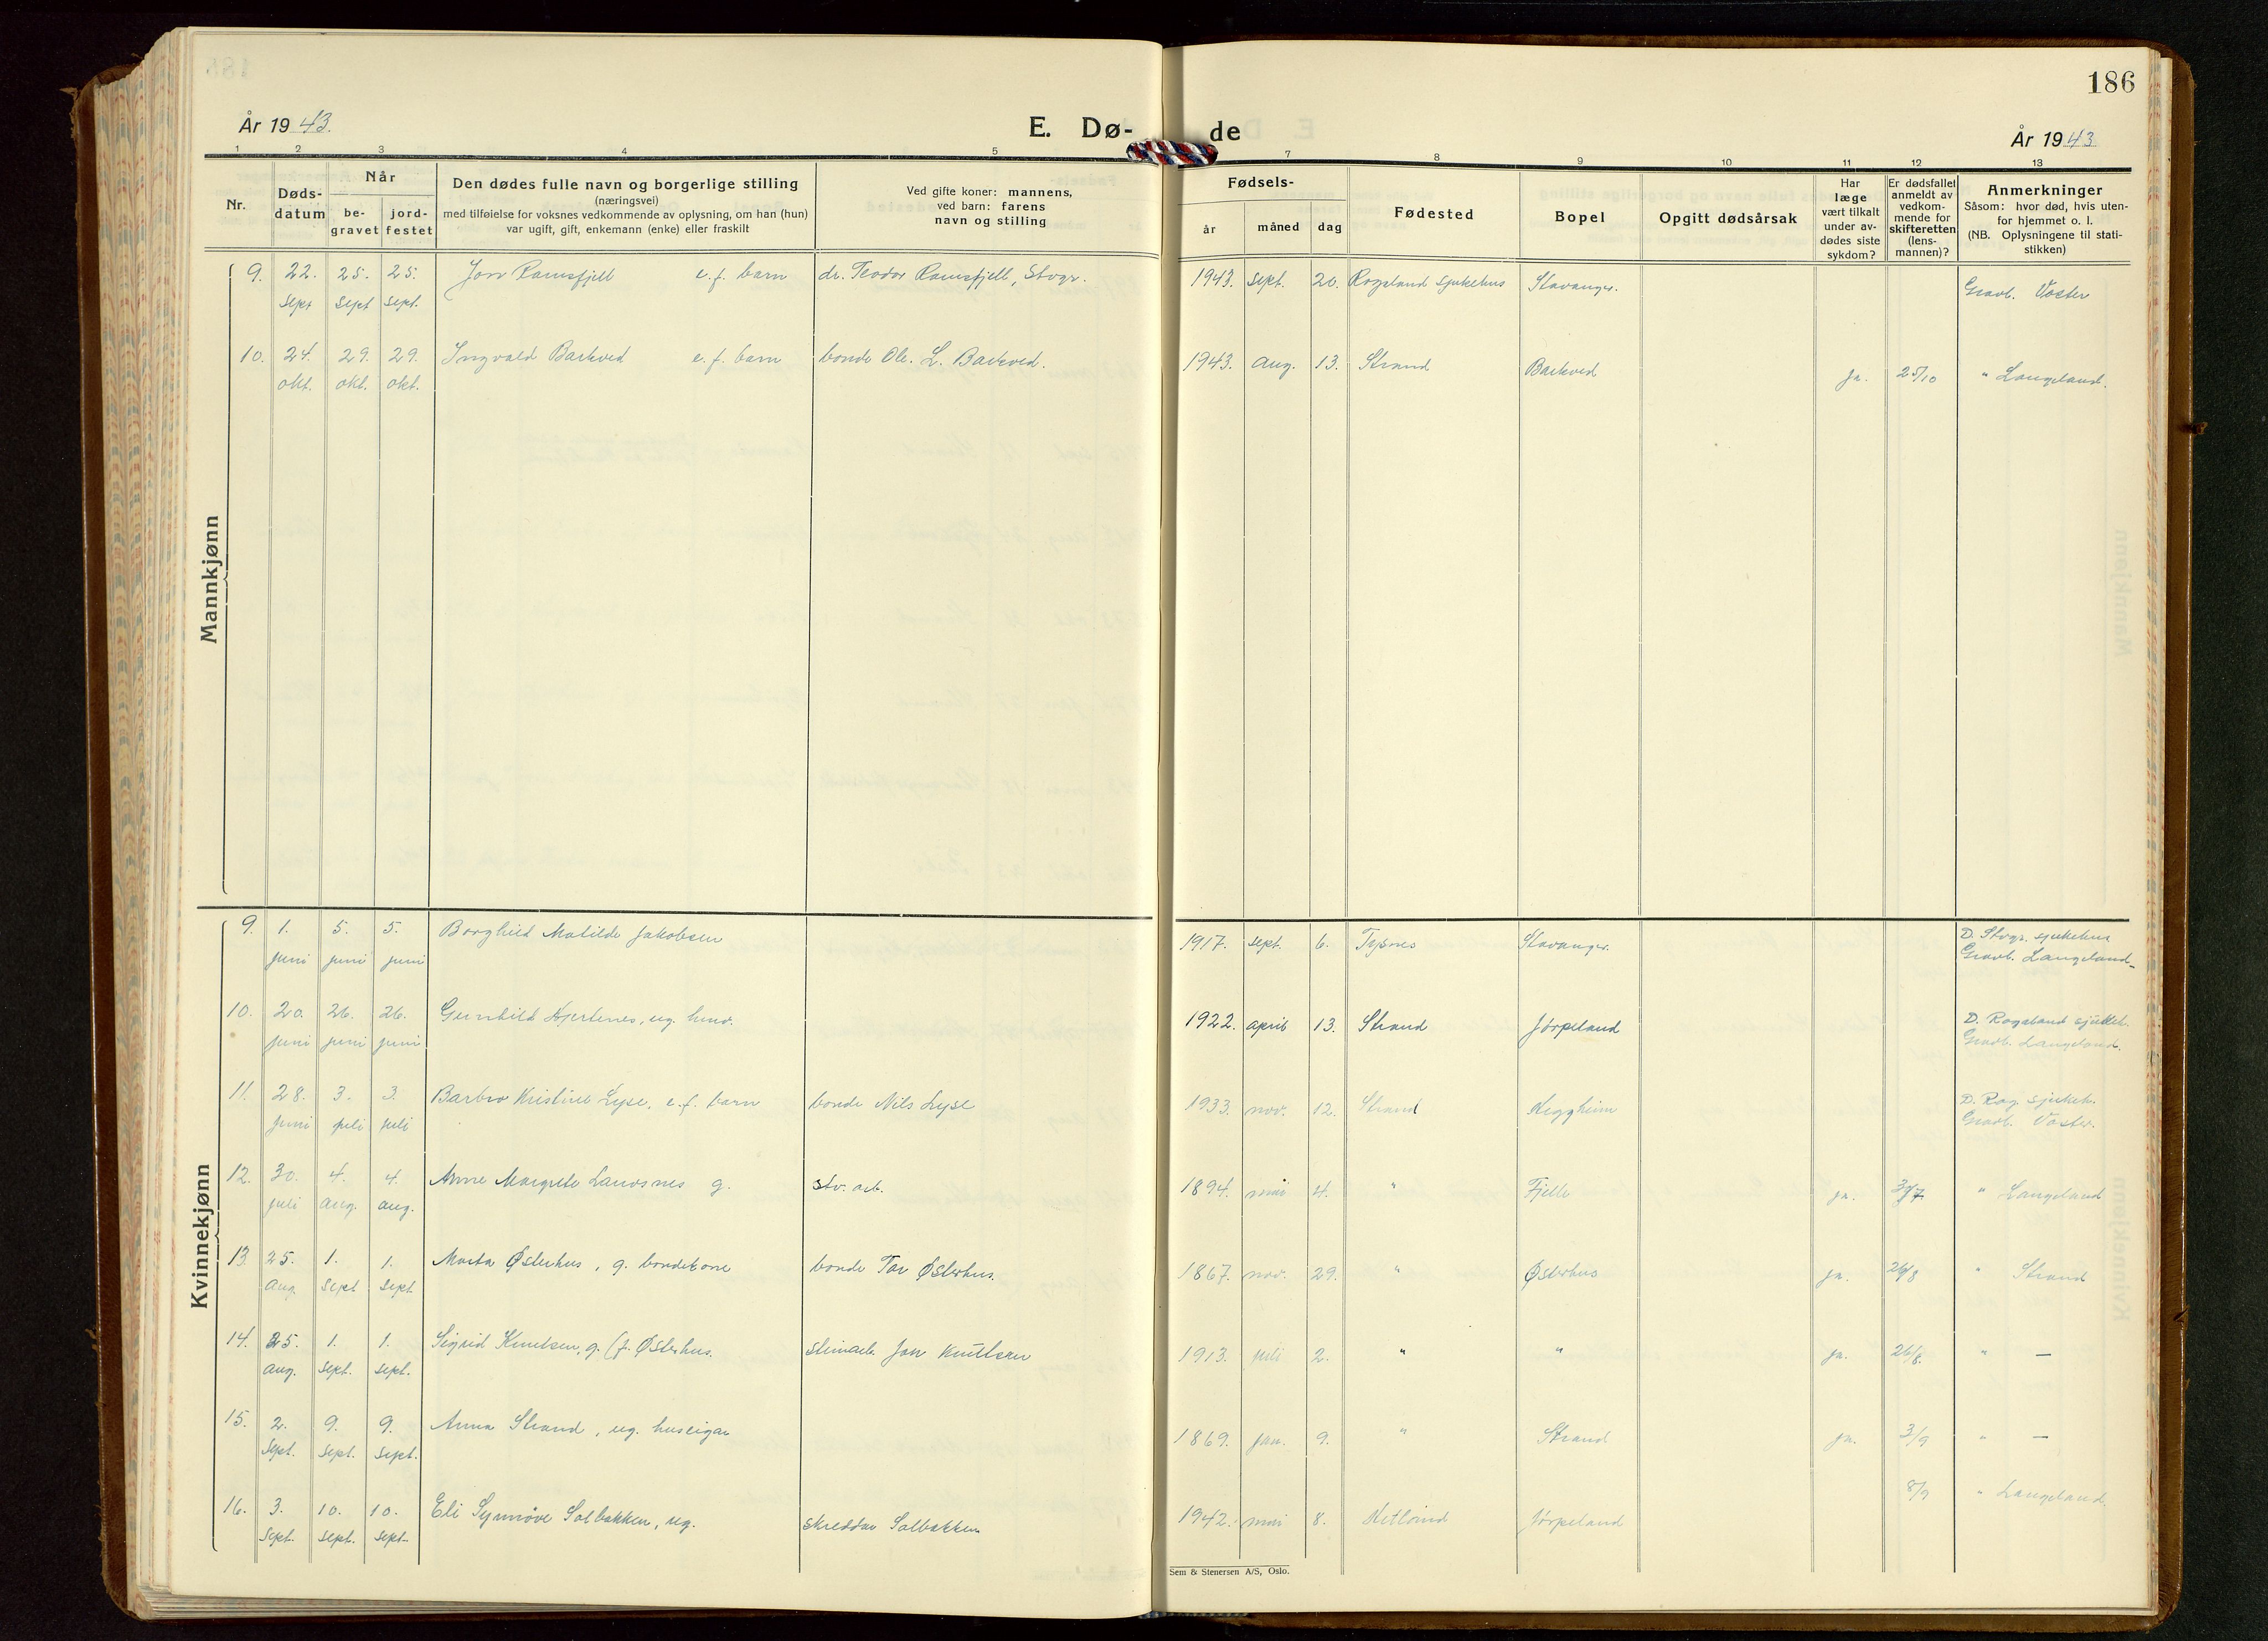 186
År 1943.
E. Dø-
de
År 1943
1 2 3 4 5 7 8 9 10 11 12 13
Nr.
Døds-
datum
Når
be-
gravet
jord-
festet
Den dødes fulle navn og borgerlige stilling
(næringsvei)
med tilføielse for voksnes vedkommende av oplysning, om han (hun)
var ugift, gift, enkemann (enke) eller fraskilt
Ved gifte koner: mannens,
ved barn: farens
navn og stilling
Fødsels-
år måned dag
Fødested
Bopel
Opgitt dødsårsak
Har
læge
vært tilkalt
under av-
dødes siste
sykdom?
Er dødsfallet
anmeldt av
vedkom-
mende for
skifteretten
(lens-
mannen)?
Anmerkninger
Såsom: hvor død, hvis uten-
for hjemmet o. l.
(NB. Oplysningene til stati-
stikken)
Mannkjønn
9. 22. 25. 25. Jon Ramsfjell e.f. barn dr. Teodor Ramsfjell, Stvgr. 1943. sept. 20. Rogaland sjukehus Stavanger. Gravl. Voster
sept sept sept.
10. 24. 29. 29. Ingvald Barkved e.f. barn bonde Ole. L. Barkved. 1943. aug. 13. Strand Barkved ja. 25/10 " Langeland.
okt. okt. okt.
Kvinnekjønn
9. 1. 5. 5. Borghild Matilde Jakobsen 1917. sept. 6. Tysnes Stavanger. D. Stvgr. sjukehus
juni juni juni Gravl. Langeland
10. 20. 26. 26. Gunhild Hjertenes, ug. 1922. april 13. Strand Jørpeland D. Rogaland sjukeh.
juni juni juni Gravl. Langeland.
11. 28. 3. 3. Barbro Kristine Lyse, e.f. barn bonde Nils Lyse 1933. nov. 12. Strand Heggheim D. Rog. sjukeh.
juni juli juli Gravl. Voster.
12. 30. 4. 4. Anne Margrete Landsnes g. arb. 1894. mai 4. " Fjelle ja. " Langeland
juli aug. aug.
13. 25. 1. 1. Marta Østerhus, g. bondekone bonde Tor Østerhus. 1867. nov. 29. " Østerhus ja. 26/8 " Strand
aug sept sept
14. 25. 1. 1. Sigrid Knutsen, g. (f. Østerhus. Jon Knutsen 1913. juli 2. " " ja. 26/8. " —
aug. sept. sept.
15. 2. 9. 9. Anna Strand, ug. huseigar 1869. jan. 9. " Strand ja. 3/9 " —
sept. sept. sept.
16. 3. 10. 10. Eli Synnøve Solbakken, ug. skreddar Solbakken 1942. mai 8. Hetland Jørpeland 8/9 " Langeland.
sept. sept. sept.
Sem & Stenersen A/S, Oslo.